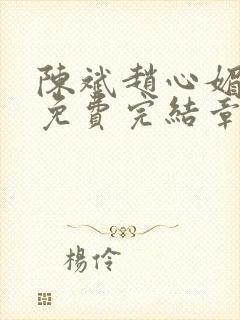 陳斌趙心媚
免費完結章
楊伶